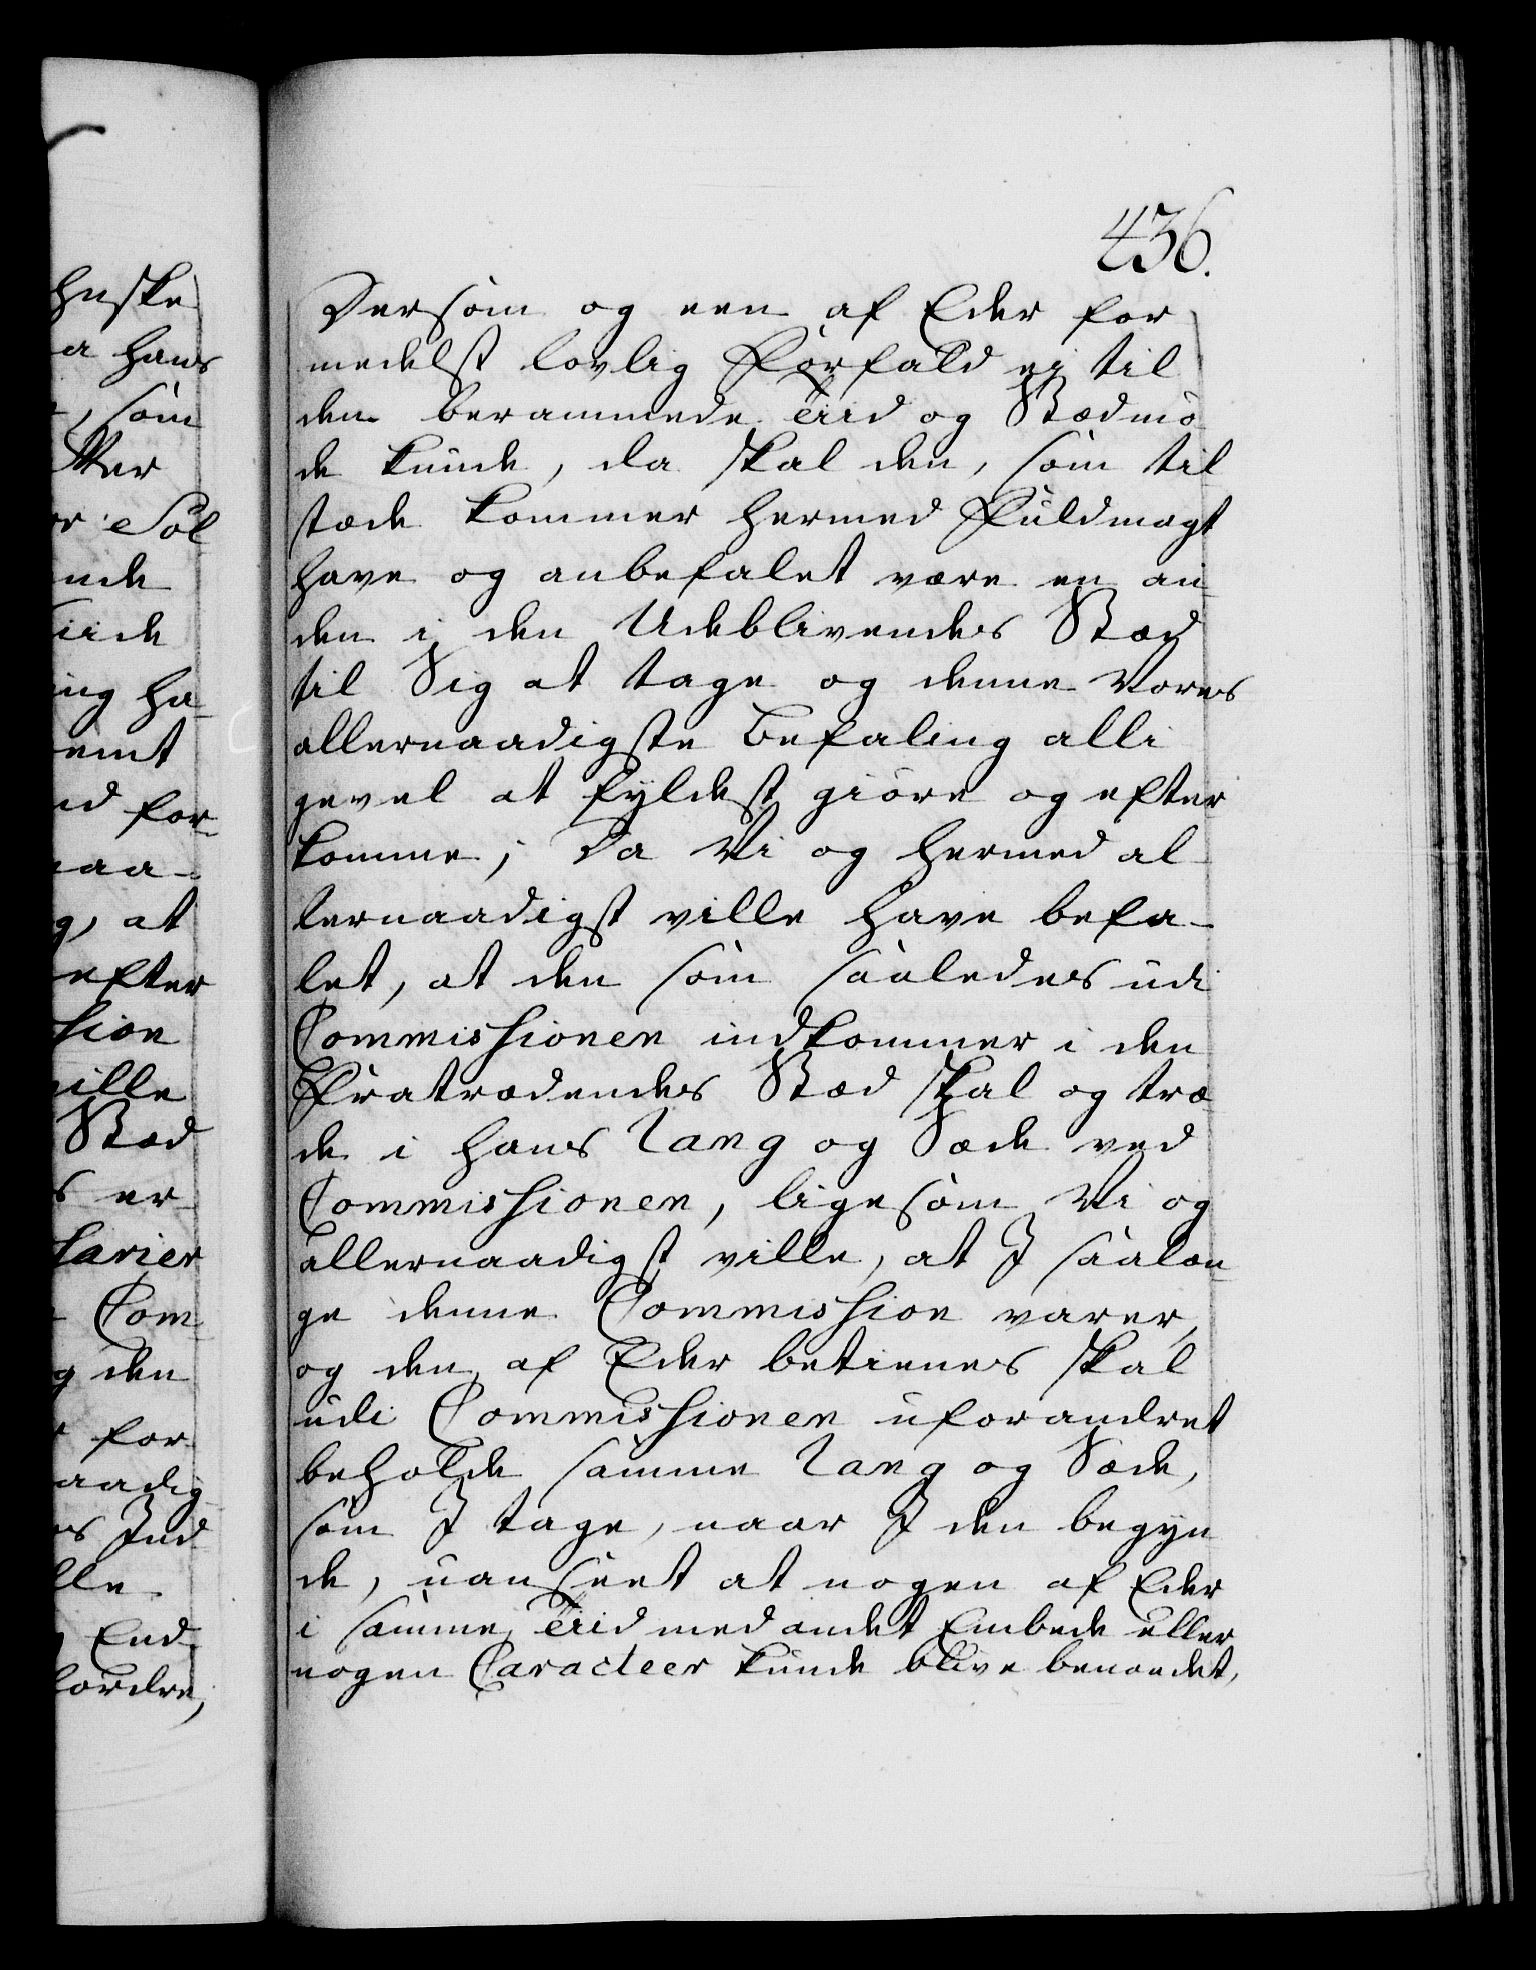 huske
a hans
, som
tter
Søl
ende
Tiide
ing ha-
emt
ed for-
naa-
g, at
efter
sion
ville
Stæd
s er-
tarier
Com
g den
for
aadig
es Ind
lle
End
fordre,
436.
Dersom og een af Eder for
medelst lovlig Forfald ej til
den berammede Tiid og Stæd mø
de kunde, da skal den, som til
stæde kommer hermed Fuldmagt
have og anbefalet være en an
den i den Udeblivendes Stæd
til Sig at tage og denne Vores
allernaadigste Befaling alli
gevel at fyldest giøre og efter
komme; Da Vi og hermed al-
lernaadigst ville have befa-
let, at den som saaledes udi
Commissionen indkommer i den
Fratrædendes Stæd skal og træ
de i hans Rang og Sæde ved
Commissionen, ligesom Vi og
allernaadigst ville, at I saalæn-
ge denne Commission varer,
og den af Eder betienes skal
udi Commissionen uforandret
beholde samme Rang og Sæde,
som I tage, naar I den begyn
de, uanseet at nogen af Eder
i samme Tiid med andet Embede eller
nogen Caracteer kunde blive benaadet,